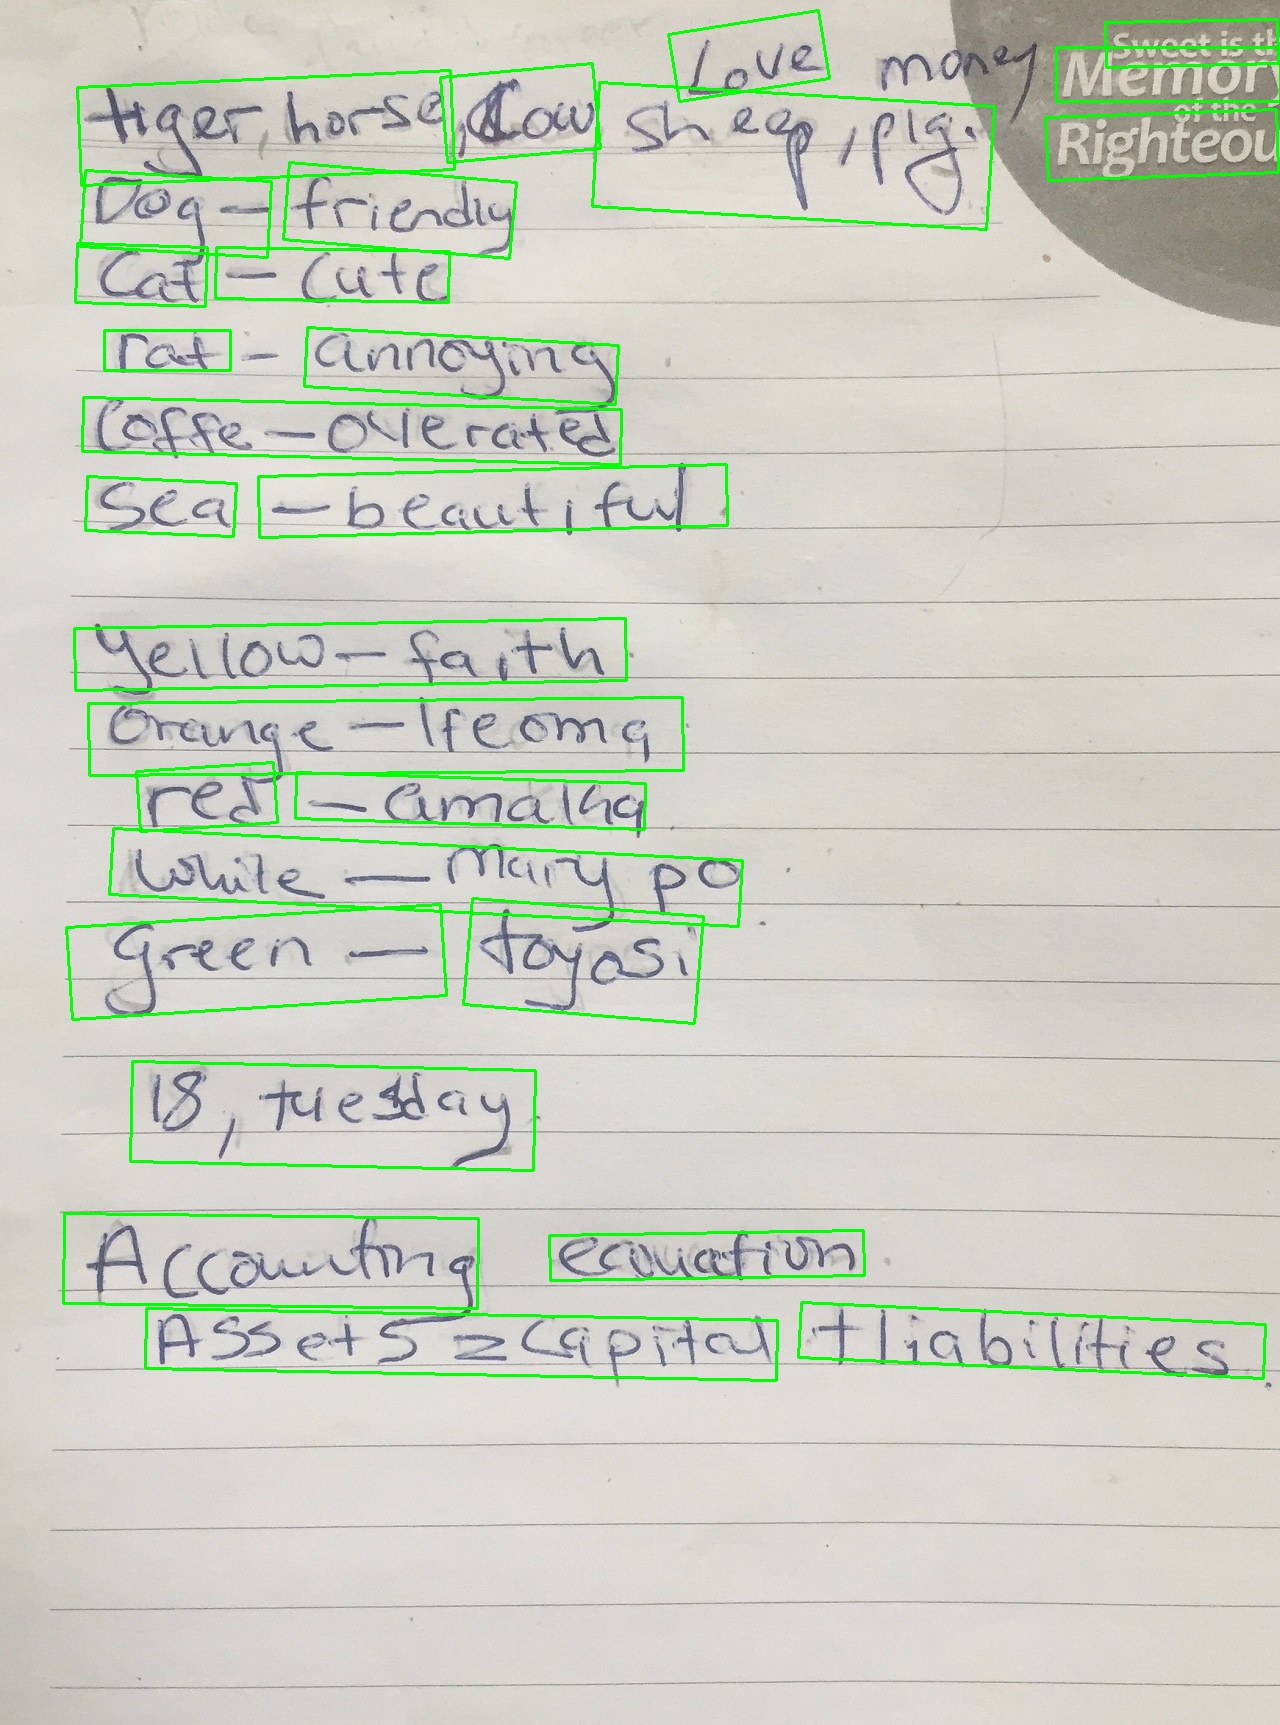 Love money
Sweet is th
Memory
of the
Righteou
tiger, horse, Cow sheep, pig.
Dog - friendly
Cat - Cute
rat - annoying
Coffe - overated
Sea - beautiful
Yellow - faith
Orange - Ifeoma
red - amaka
White - Mary po
Green - toyosi
18, tuesday
Accounting equation
Assets = Capital + liabilities